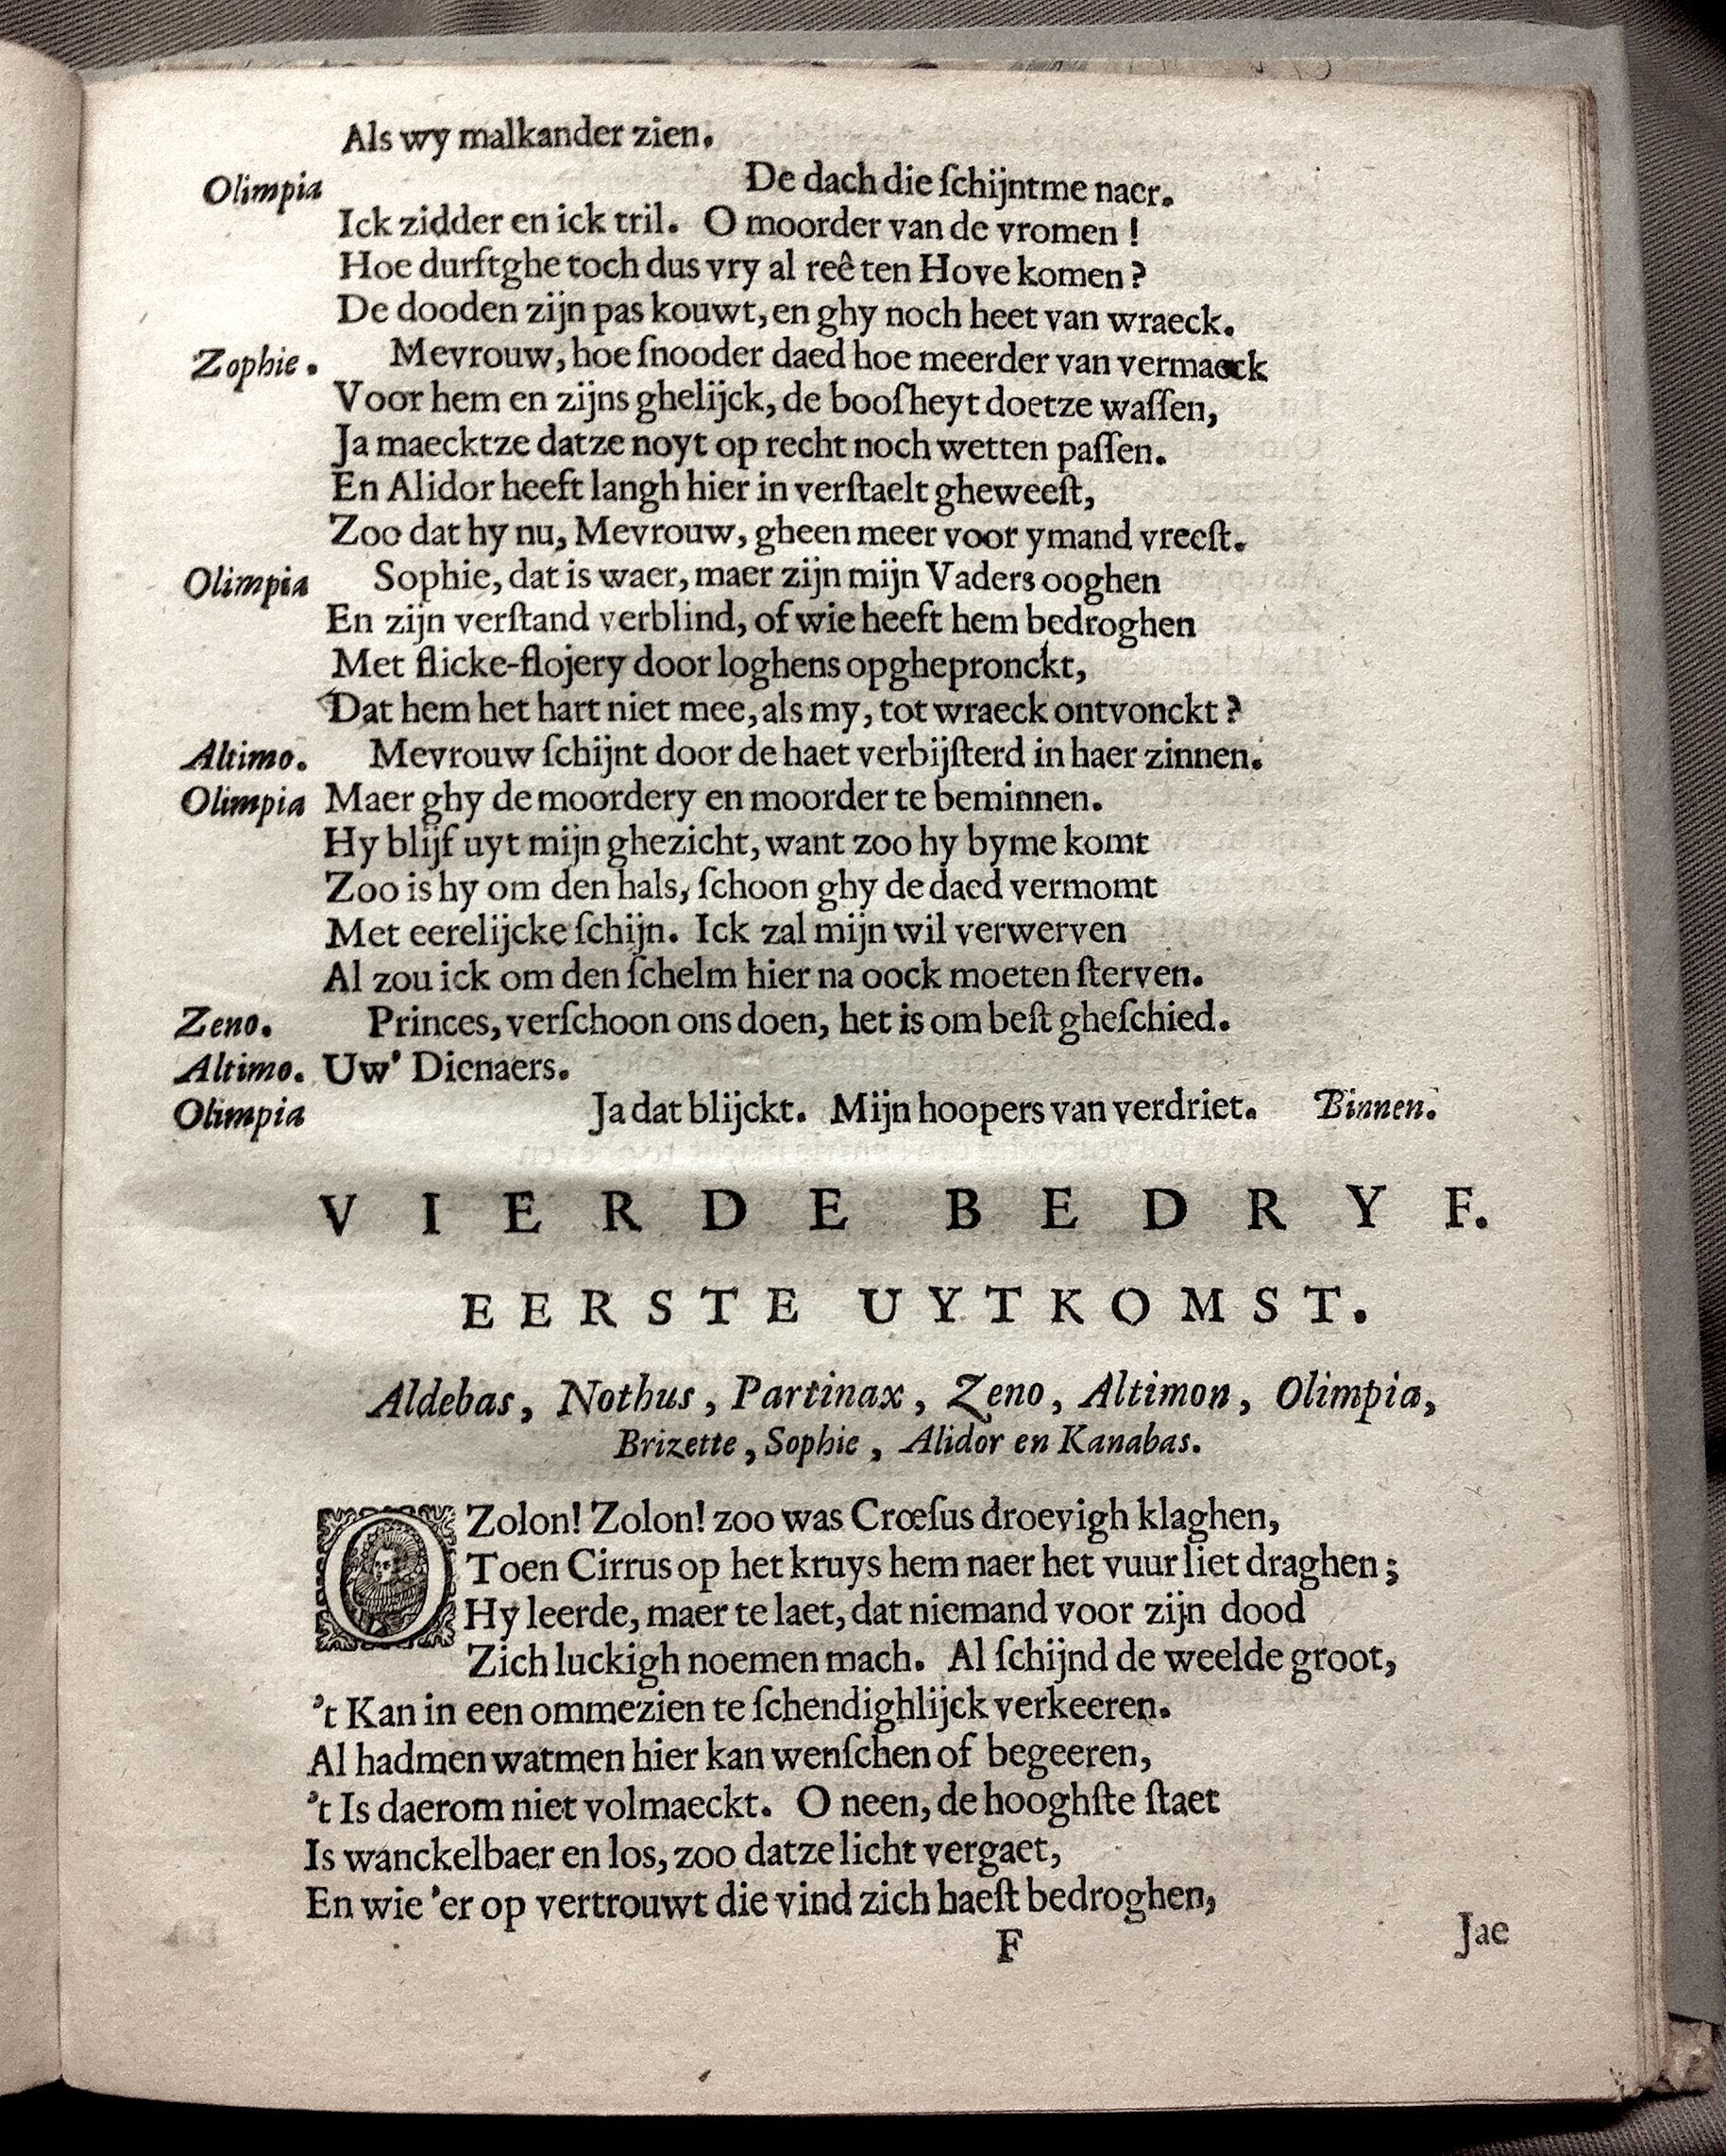 Als wy malkander zien.
Olimpia De dach die ſchijntme naer.
Ick zidder en ick tril. O moorder van de vromen !
Hoe durftghe toch dus vry al reê ten Hove komen ?
De dooden zijn pas kouwt, en ghy noch heet van wraeck.
Zophie. Mevrouw, hoe ſnooder daed hoe meerder van vermaeck
Voor hem en zijns ghelijck, de booſheyt doetze waſſen,
Ja maecktze datze noyt op recht noch wetten paſſen.
En Alidor heeft langh hier in verſtaelt gheweeſt,
Zoo dat hy nu, Mevrouw, gheen meer voor ymand vreeſt.
Olimpia Sophie, dat is waer, maer zijn mijn Vaders ooghen
En zijn verſtand verblind, of wie heeft hem bedroghen
Met flicke-flojery door loghens opghepronckt,
Dat hem het hart niet mee, als my, tot wraeck ontvonckt ?
Altimo. Mevrouw ſchijnt door de haet verbijſterd in haer zinnen.
Olimpia Maer ghy de moordery en moorder te beminnen.
Hy blijf uyt mijn ghezicht, want zoo hy byme komt
Zoo is hy om den hals, ſchoon ghy de daed vermomt
Met eerelijcke ſchijn. Ick zal mijn wil verwerven
Al zou ick om den ſchelm hier na oock moeten ſterven.
Zeno. Princes, verſchoon ons doen, het is om beſt gheſchied.
Altimo. Uw' Dienaers.
Olimpia Ja dat blijckt. Mijn hoopers van verdriet. Binnen.
VIERDE BEDRYF.
EERSTE UYTKOMST.
Aldebas, Nothus, Partinax, Zeno, Altimon, Olimpia,
Brizette, Sophie, Alidor en Kanabas.
O Zolon! Zolon! zoo was Crœſus droevigh klaghen,
Toen Cirrus op het kruys hem naer het vuur liet draghen ;
Hy leerde, maer te laet, dat niemand voor zijn dood
Zich luckigh noemen mach. Al ſchijnd de weelde groot,
't Kan in een ommezien te ſchendighlijck verkeeren.
Al hadmen watmen hier kan wenſchen of begeeren,
't Is daerom niet volmaeckt. O neen, de hooghſte ſtaet
Is wanckelbaer en los, zoo datze licht vergaet,
En wie 'er op vertrouwt die vind zich haeſt bedroghen,
F Jae